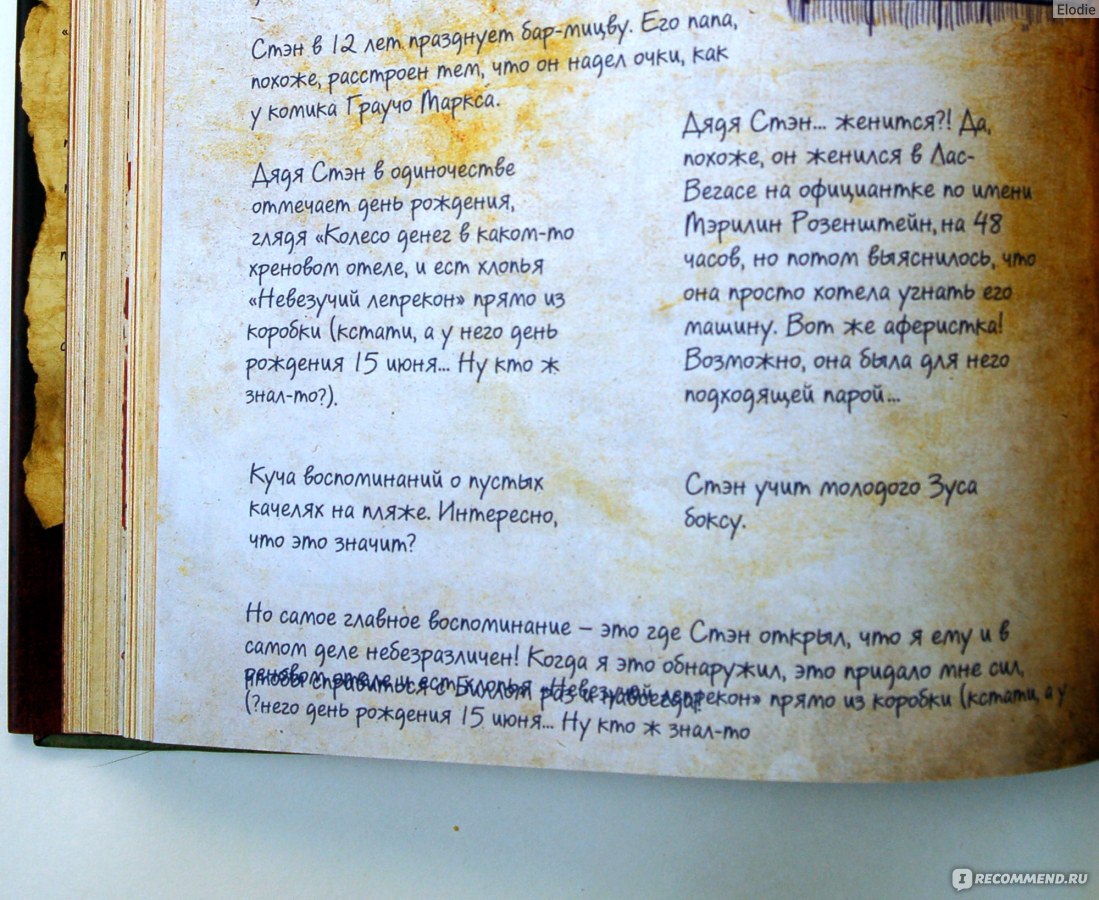 Elodie
Стэн в 12 лет празднует бар-мицву. Его папа,
похоже, расстроен тем, что он надел очки, как
у комика Граучо Маркса.
Дядя Стэн в одиночестве
отмечает день рождения,
глядя «Колесо денег в каком-то
хреновом отеле, и ест хлопья
«Невезучий лепрекон» прямо из
коробки (кстати, а у него день
рождения 15 июня... Ну кто ж
знал-то?).
Куча воспоминаний о пустых
качелях на пляже. Интересно,
что это значит?
Дядя Стэн... женится?! Да,
похоже, он женился в Лас-
Вегасе на официантке по имени
Мэрилин Розенштейн, на 48
часов, но потом выяснилось, что
она просто хотела угнать его
машину. Вот же аферистка!
Возможно, она была для него
подходящей парой...
Стэн учит молодого Зуса
боксу.
Но самое главное воспоминание – это где Стэн открыл, что я ему и в
самом деле небезразличен! Когда я это обнаружил, это придало мне сил,
чтобы справиться с Биллом раз и навсегда!
хреновом отеле, и ест хлопья «Невезучий лепрекон» прямо из коробки (кстати, а у
(?него день рождения 15 июня... Ну кто ж знал-то
IRECOMMEND.RU